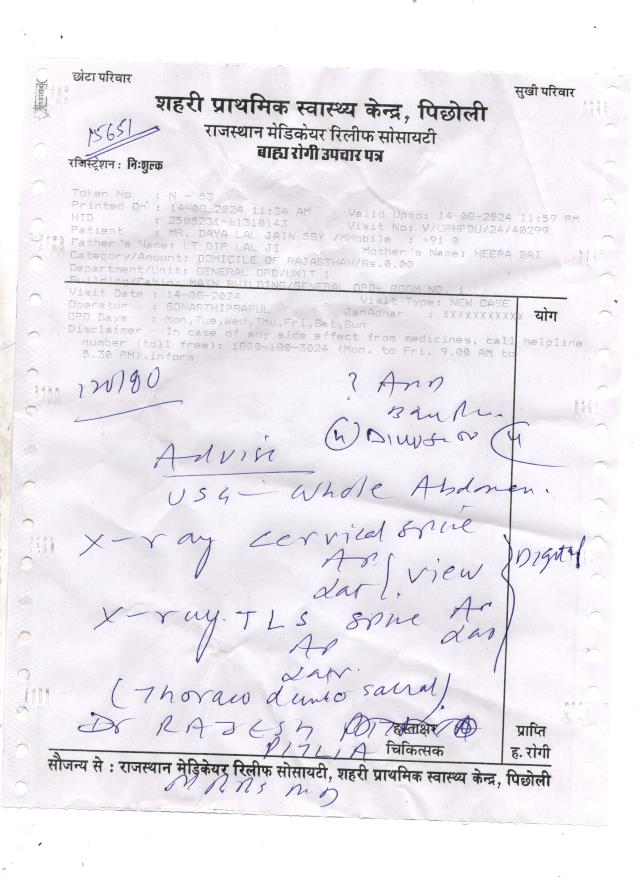 छोटा परिवार
सुखी परिवार
शहरी प्राथमिक स्वास्थ्य केन्द्र, पिछोली
राजस्थान मेडिकेयर रिलीफ सोसायटी
15651
बाह्य रोगी उपचार पत्र
रजिस्ट्रेशन : निःशुल्क
Token No : N - 63
Printed On : 14-08-2024 11:34 AM Valid Upto: 14-08-2024 11:59 PM
HID : 2505231-61310143 Visit No: V/UPHPDU/24/40299
Patient : MR. DAYA LAL JAIN 58Y /MMobile : +91 0
Father's Name: LT DIP LAL JI Mother's Name: HEERA BAI
Category/Amount: DOMICILE OF RAJASTHAN/Rs.0.00
Department/Unit: GENERAL OPD/UNIT 1
Building/Cabin: MAIN BUILDING/GENERAL OPD- ROOM NO. 1
Visit Date : 14-08-2024 Visit Type: NEW CASE
Operator : SONARTHIPRAFUL JanAdhar : XXXXXXXXXXX योग
OPD Days : Mon,Tue,Wed,Thu,Fri,Sat,Sun
Disclaimer - In case of any side effect from medicines, call helpline
number (toll free): 1800-180-3024 (Mon. to Fri. 9.00 AM to
5.30 PM).inform
120/80
?
Advise
USG - Whole Abdomen.
X-ray cervical spine
AP
Lat view
Digital
X-ray TLS spine AP
Lat
AP
Latr.
(Thoraco Lumbo sacral)
Dr RAJESH हस्ताक्षर प्राप्ति
PITLIA चिकित्सक ह. रोगी
सौजन्य से : राजस्थान मेडिकेयर रिलीफ सोसायटी, शहरी प्राथमिक स्वास्थ्य केन्द्र, पिछोली